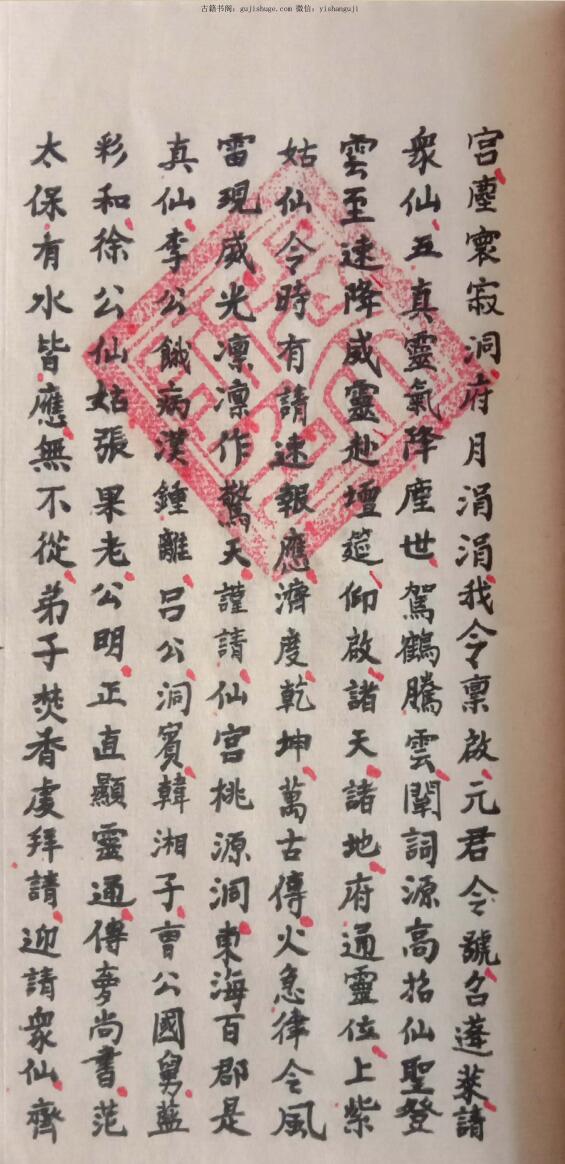 古籍书阁：gujishuge.com 微信：yishanguji
宫塵寰寂洞府月涓涓我令稟啟元君令號召蓬萊請
衆仙五真靈氣降塵世駕鶴騰雲闡詞源高招仙聖登
雲至速降威靈赴壇筵仰啟諸天諸地府通靈位上紫
姑仙令時有請速報應濟度乾坤萬古傳火急律令風
雷現威光凛凛作驚天謹請仙宮桃源洞東海百郡是
真仙李公餓病漢鍾離吕公洞賓韓湘子曹公國舅藍
彩和徐公仙姑張果老公明正直顯靈通傳夢尚書范
太保有水皆應無不從弟子焚香虔拜請迎請衆仙齊